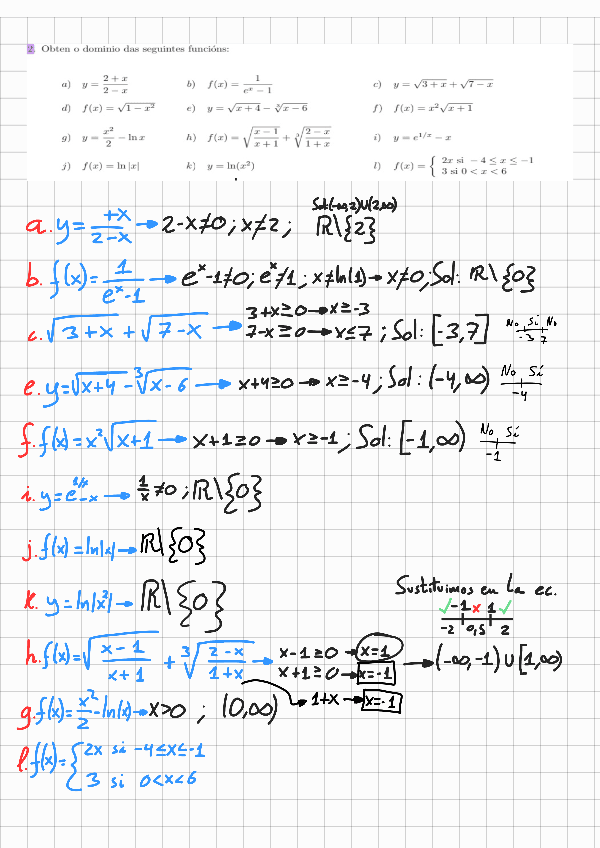 2. Obten o dominio das seguintes funcións:
a) y = \frac{2+x}{2-x} b) f(x) = \frac{1}{e^x-1} c) y = \sqrt{3+x} + \sqrt{7-x}
d) f(x) = \sqrt{1-x^2} e) y = \sqrt{x+4} - \sqrt[3]{x-6} f) f(x) = x^2\sqrt{x+1}
g) y = \frac{x^2}{2} - ln x h) f(x) = \sqrt{\frac{x-1}{x+1}} + \sqrt[3]{\frac{2-x}{1+x}} i) y = e^{1/x} - x
j) f(x) = ln |x| k) y = ln(x^2) l) f(x) = { 2x si -4 ≤ x ≤ -1
3 si 0 < x < 6
Sol:(-∞,2)U(2,∞)
a. y = \frac{+x}{2-x} → 2-x≠0; x≠2; ℝ\{2}
b. f(x) = \frac{1}{e^x-1} → e^x-1≠0; e^x≠1; x≠ln(1) → x≠0; Sol: ℝ\{0}
c. \sqrt{3+x} + \sqrt{7-x} → 3+x≥0 → x≥-3
7-x≥0 → x≤7; Sol: [-3,7] No Sí No
-3 7
e. y = \sqrt{x+4} - \sqrt[3]{x-6} → x+4≥0 → x≥-4; Sol: (-4,∞) No Sí
-4
f. f(x) = x^2\sqrt{x+1} → x+1≥0 → x≥-1; Sol: [-1,∞) No Sí
-1
i. y = e^{1/x}-x → \frac{1}{x}≠0; ℝ\{0}
j. f(x) = ln|x| → ℝ\{0}
k. y = ln|x^2| → ℝ\{0}
Sustituimos en la ec.
✓ -1 x 1 ✓
-2 0,5 2
h. f(x) = \sqrt{\frac{x-1}{x+1}} + \sqrt[3]{\frac{2-x}{1+x}} → x-1≥0 → x=1
x+1≥0 → x=-1 → (-∞,-1) U [1,∞)
1+x → x=-1
g. f(x) = \frac{x^2}{2} - ln(x) → x>0 ; (0,∞)
l. f(x) = { 2x si -4≤x≤-1
3 si 0<x<6